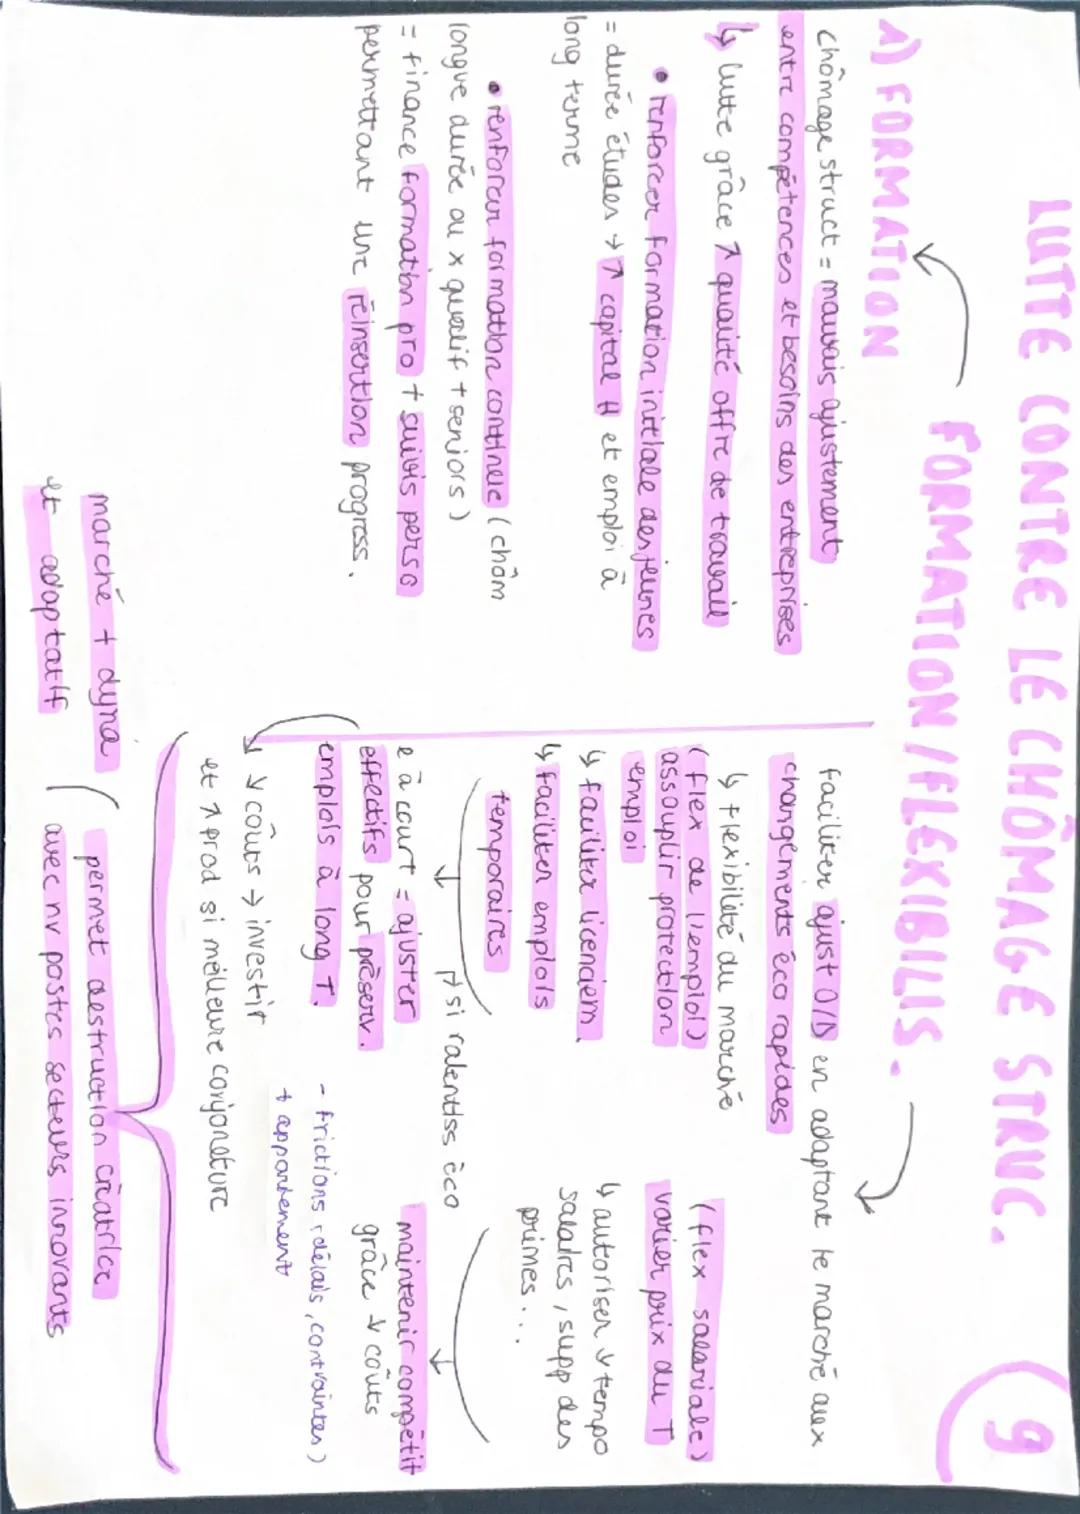 LUTTE CONTRE LE CHÔMAGE STRUC.
9
FORMATION/FLEXIBILIS.
1) FORMATION
chômage struct = mauvais ajustement
entre compétences et besoins des entreprises
↳ lutte grâce ↗ qualité offre de travail
• renforcer formation initiale des jeunes
= durée études → ↗ capital H et emploi à
long terme
• renforcer formation continue (chôm
longue durée ou x qualif + seniors)
= finance formation pro + suivis perso
permettant une réinsertion progress.
faciliter ajust O/D en adaptant le marché aux
changements éco rapides
↳ flexibilité du marché
(flex de l'emploi)
assouplir protection
emploi
↳ faciliter licenciem.
↳ faciliter emplois
temporaires
(flex salariale)
varier prix du T
↳ autoriser ↓ tempo
salaires, supp des
primes...
↱ si ralentiss éco
e à court = ajuster
effectifs pour préserv.
emplois à long T.
maintenir compétit
grâce ↓ coûts
- frictions (délais, contraintes)
+ appariement
↓ coûts → investir
et ↗ prod si meilleure conjoncture
marché + dyna
et adaptatif
permet destruction créatrice
avec nv postes secteurs innovants